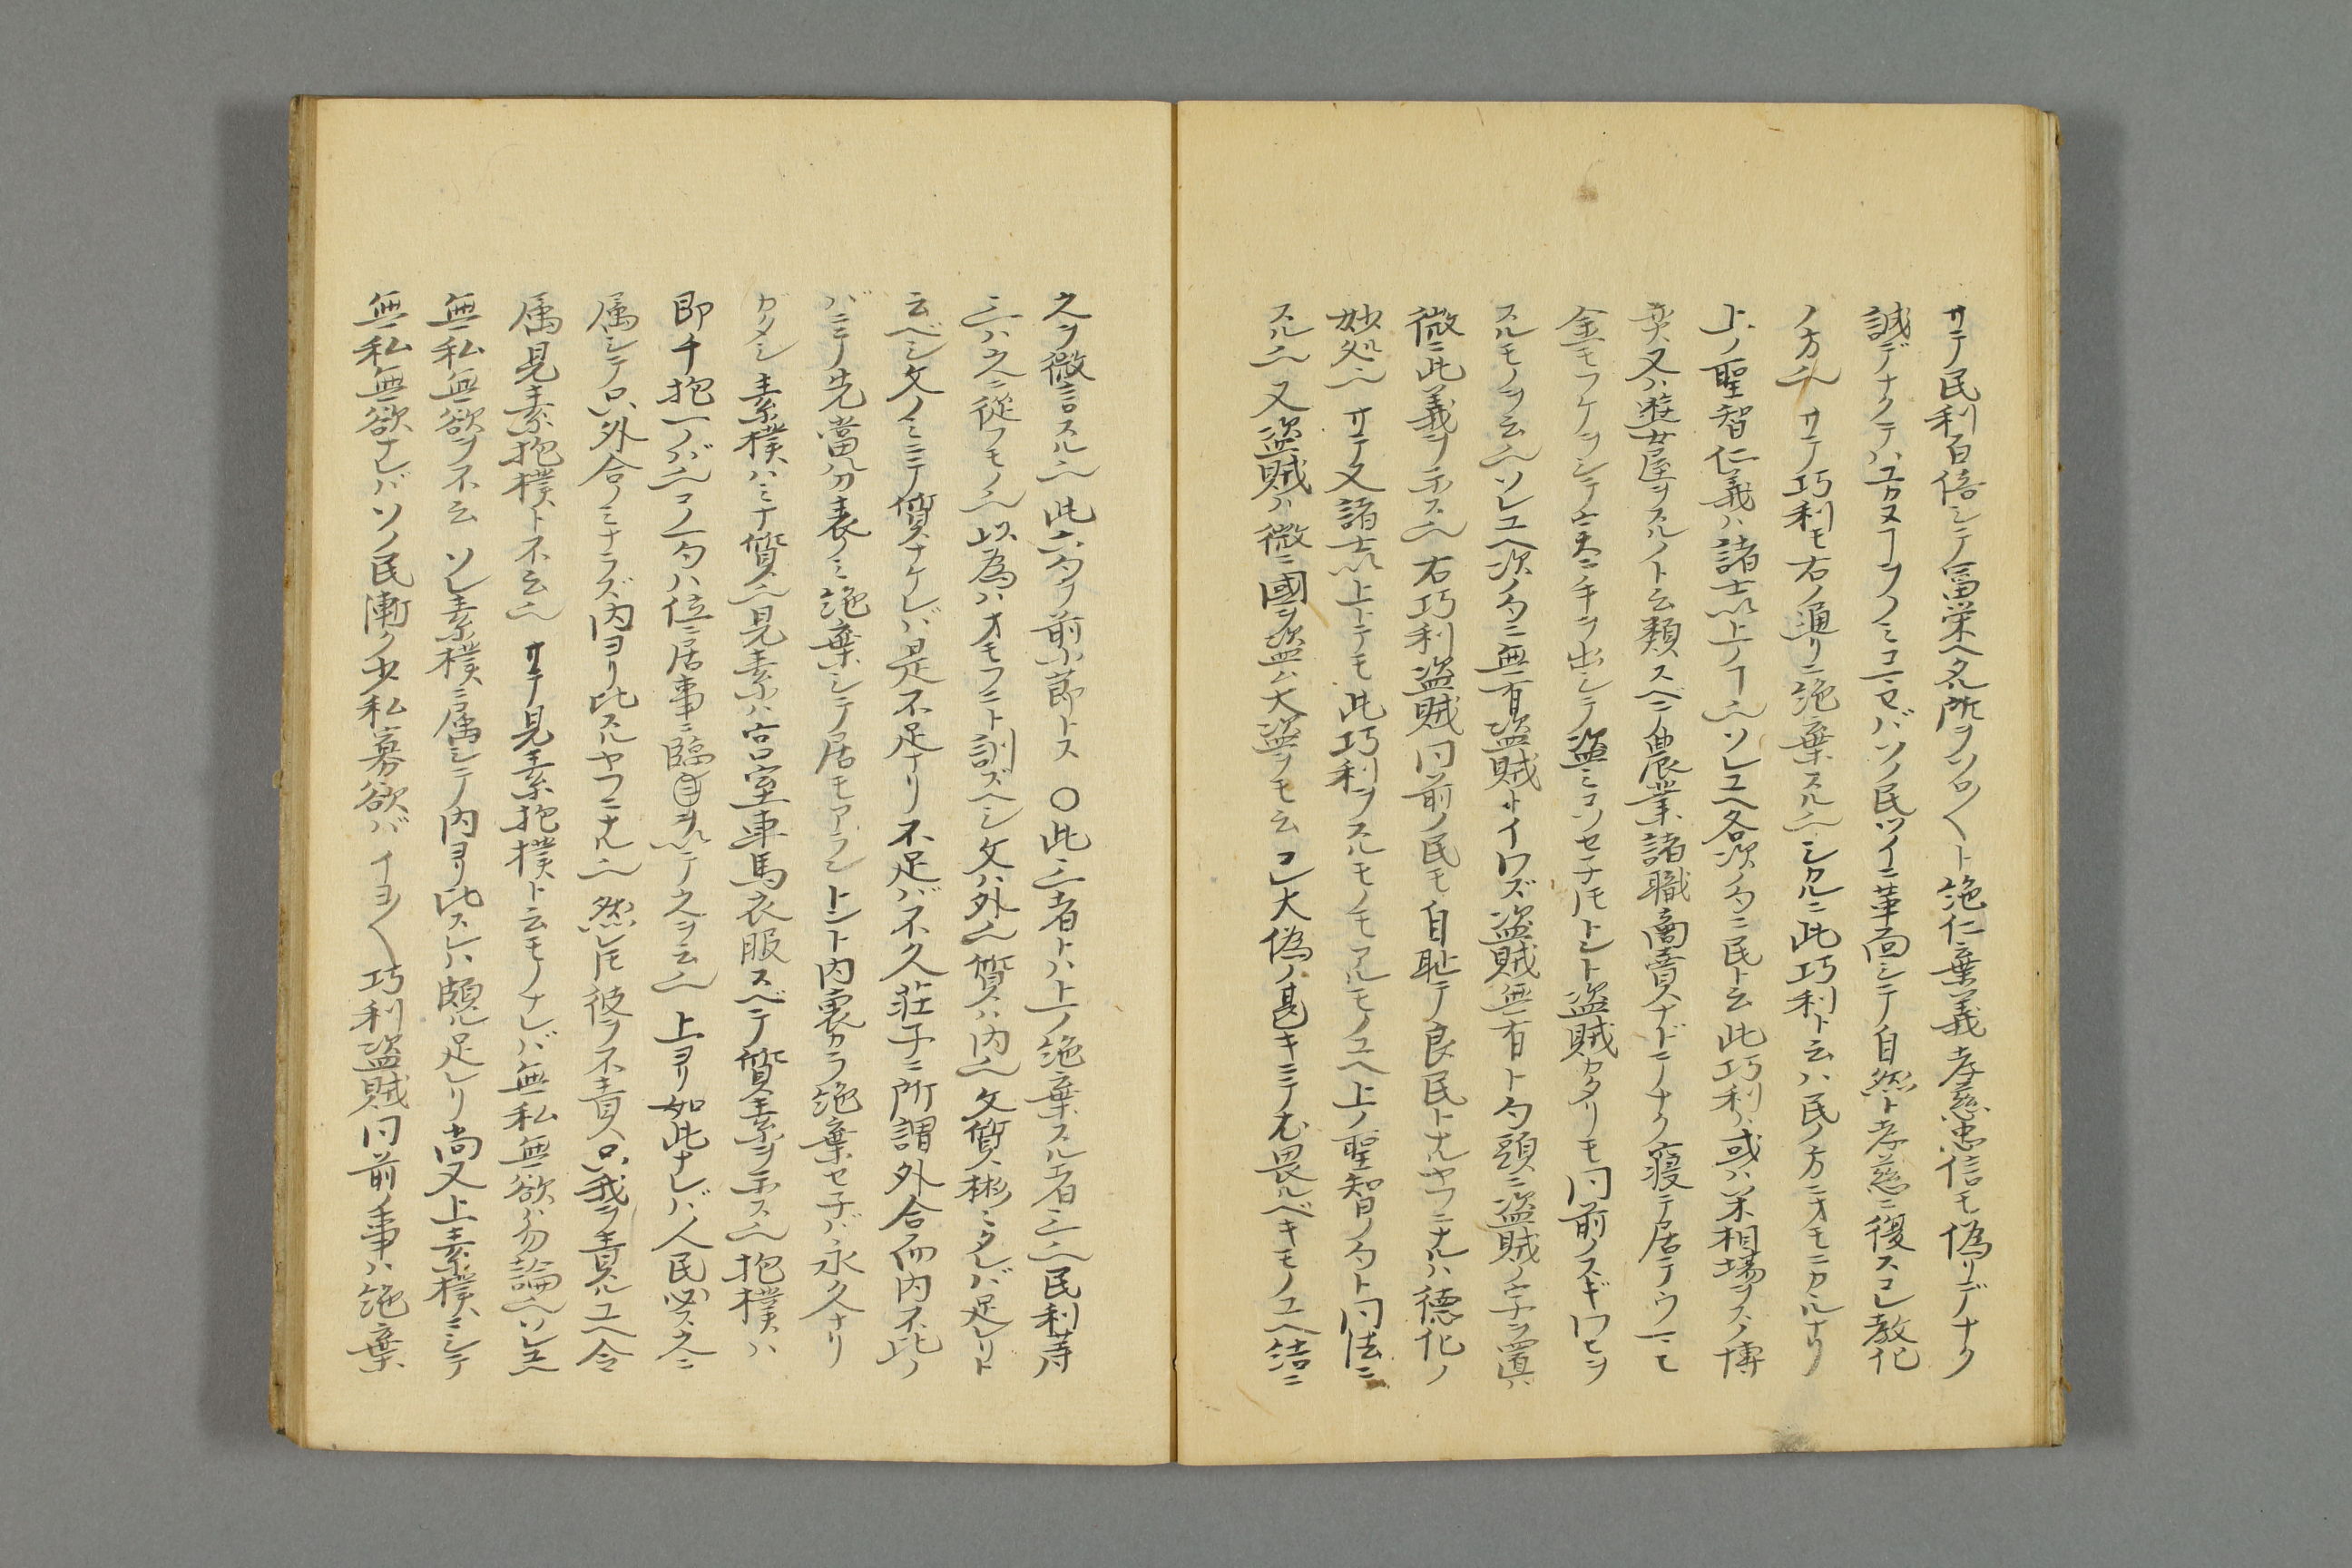 サテ民利百倍シテ冨栄ヘタル所ヲソロ〱ト絶仁棄義孝慈忠信モ偽リデナク
誠デナクテハユカヌヿヲノミコマセバソノ民ツイニ革面シテ自然ト孝慈ニ復スコレ教化
ノ方也 サテ巧利モ右ノ通リニ絶棄スル也シカルニ此巧利ト云ハ民ノ方ニオモニカヽルナリ
上ノ聖智仁義ハ諸士以上ノヿ也ソレユヘ各次ノ句ニ民ト云此巧利ハ或ハ米相場ヲスノ博
奕又ハ遊女屋ヲスルノト云類スベテ農業諸職商賣ナドニテナク寝テ居テウマヒ
金モフケヲシテ実ニ手ヲ出シテ盗ミコソセ子𪜈トント盗賊カタリモ同前ノスギワヒヲ
スルモノヲ云也ソレユヘ次ノ句ニ無有盗賊トイワズ盗賊無有ト句頭ニ盗賊ノ字ヲ置ハ
微ニ此義ヲ示ス也右巧利盗賊同前ノ民モ自耻テ良民トナルヤフニナルハ德化ノ
妙処也 サテ又諸士以上トテモ此巧利ヲスルモノモアルモノユヘ上ノ聖智ノ句ト同法ニ
スル也 又盗賊ハ微ニ國ヲ盗ム大盗ヲモ云コレ大偽ノ甚キニテ尤畏ルベキモノユヘ結ニ
之ヲ微言スル也此六句ヲ前小節トス ○此三者トハ上ノ絶棄スル者三也民利等ノ
三ハ之ニ從フモノ也以為ハオモフニト訓ズベシ文ハ外也質ハ内也文質彬ミタレバ足レリト
云ベシ文ノミニテ質ナケレバ是不足ナリ不足バ不久荘子ニ所謂外合而内不訿ノ
バニテ先當分表ノミ絶棄シテ居モアランシトント内裏カラ絶棄セ子バ永久ナリ
ガタシ素樸ハミナ質也見素ハ宮室車馬衣服スベテ質素ヲ示ス也抱樸ハ
即チ抱一ノバ也コノ一句ハ位ニ居事ニ臨ヲ以テ之ヲ云也上ヨリ如此ナレバ人民必之ニ
属シテ只外合ノミナラズ内ヨリ訿スルヤフニナル也然レ𪜈彼ヲ不責只我ヲ責ルユヘ令
属見素抱樸ト不云也 サテ見素抱樸ト云モノナレバ無私無欲ハ勿論也ソレユヘ
無私無欲ヲ不云ソレ素樸ニ属シテ内ヨリ訿スレハ頗ル足レリ尚又上素樸ニシテ
無私無欲ナレバソノ民漸ク少私寡欲バイヨ〱巧利盗賊同前ノ事ハ絶棄